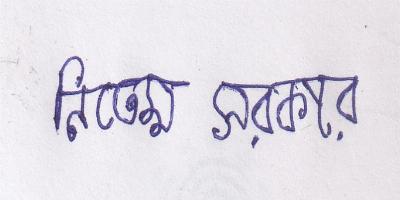 নিতেম সরকার